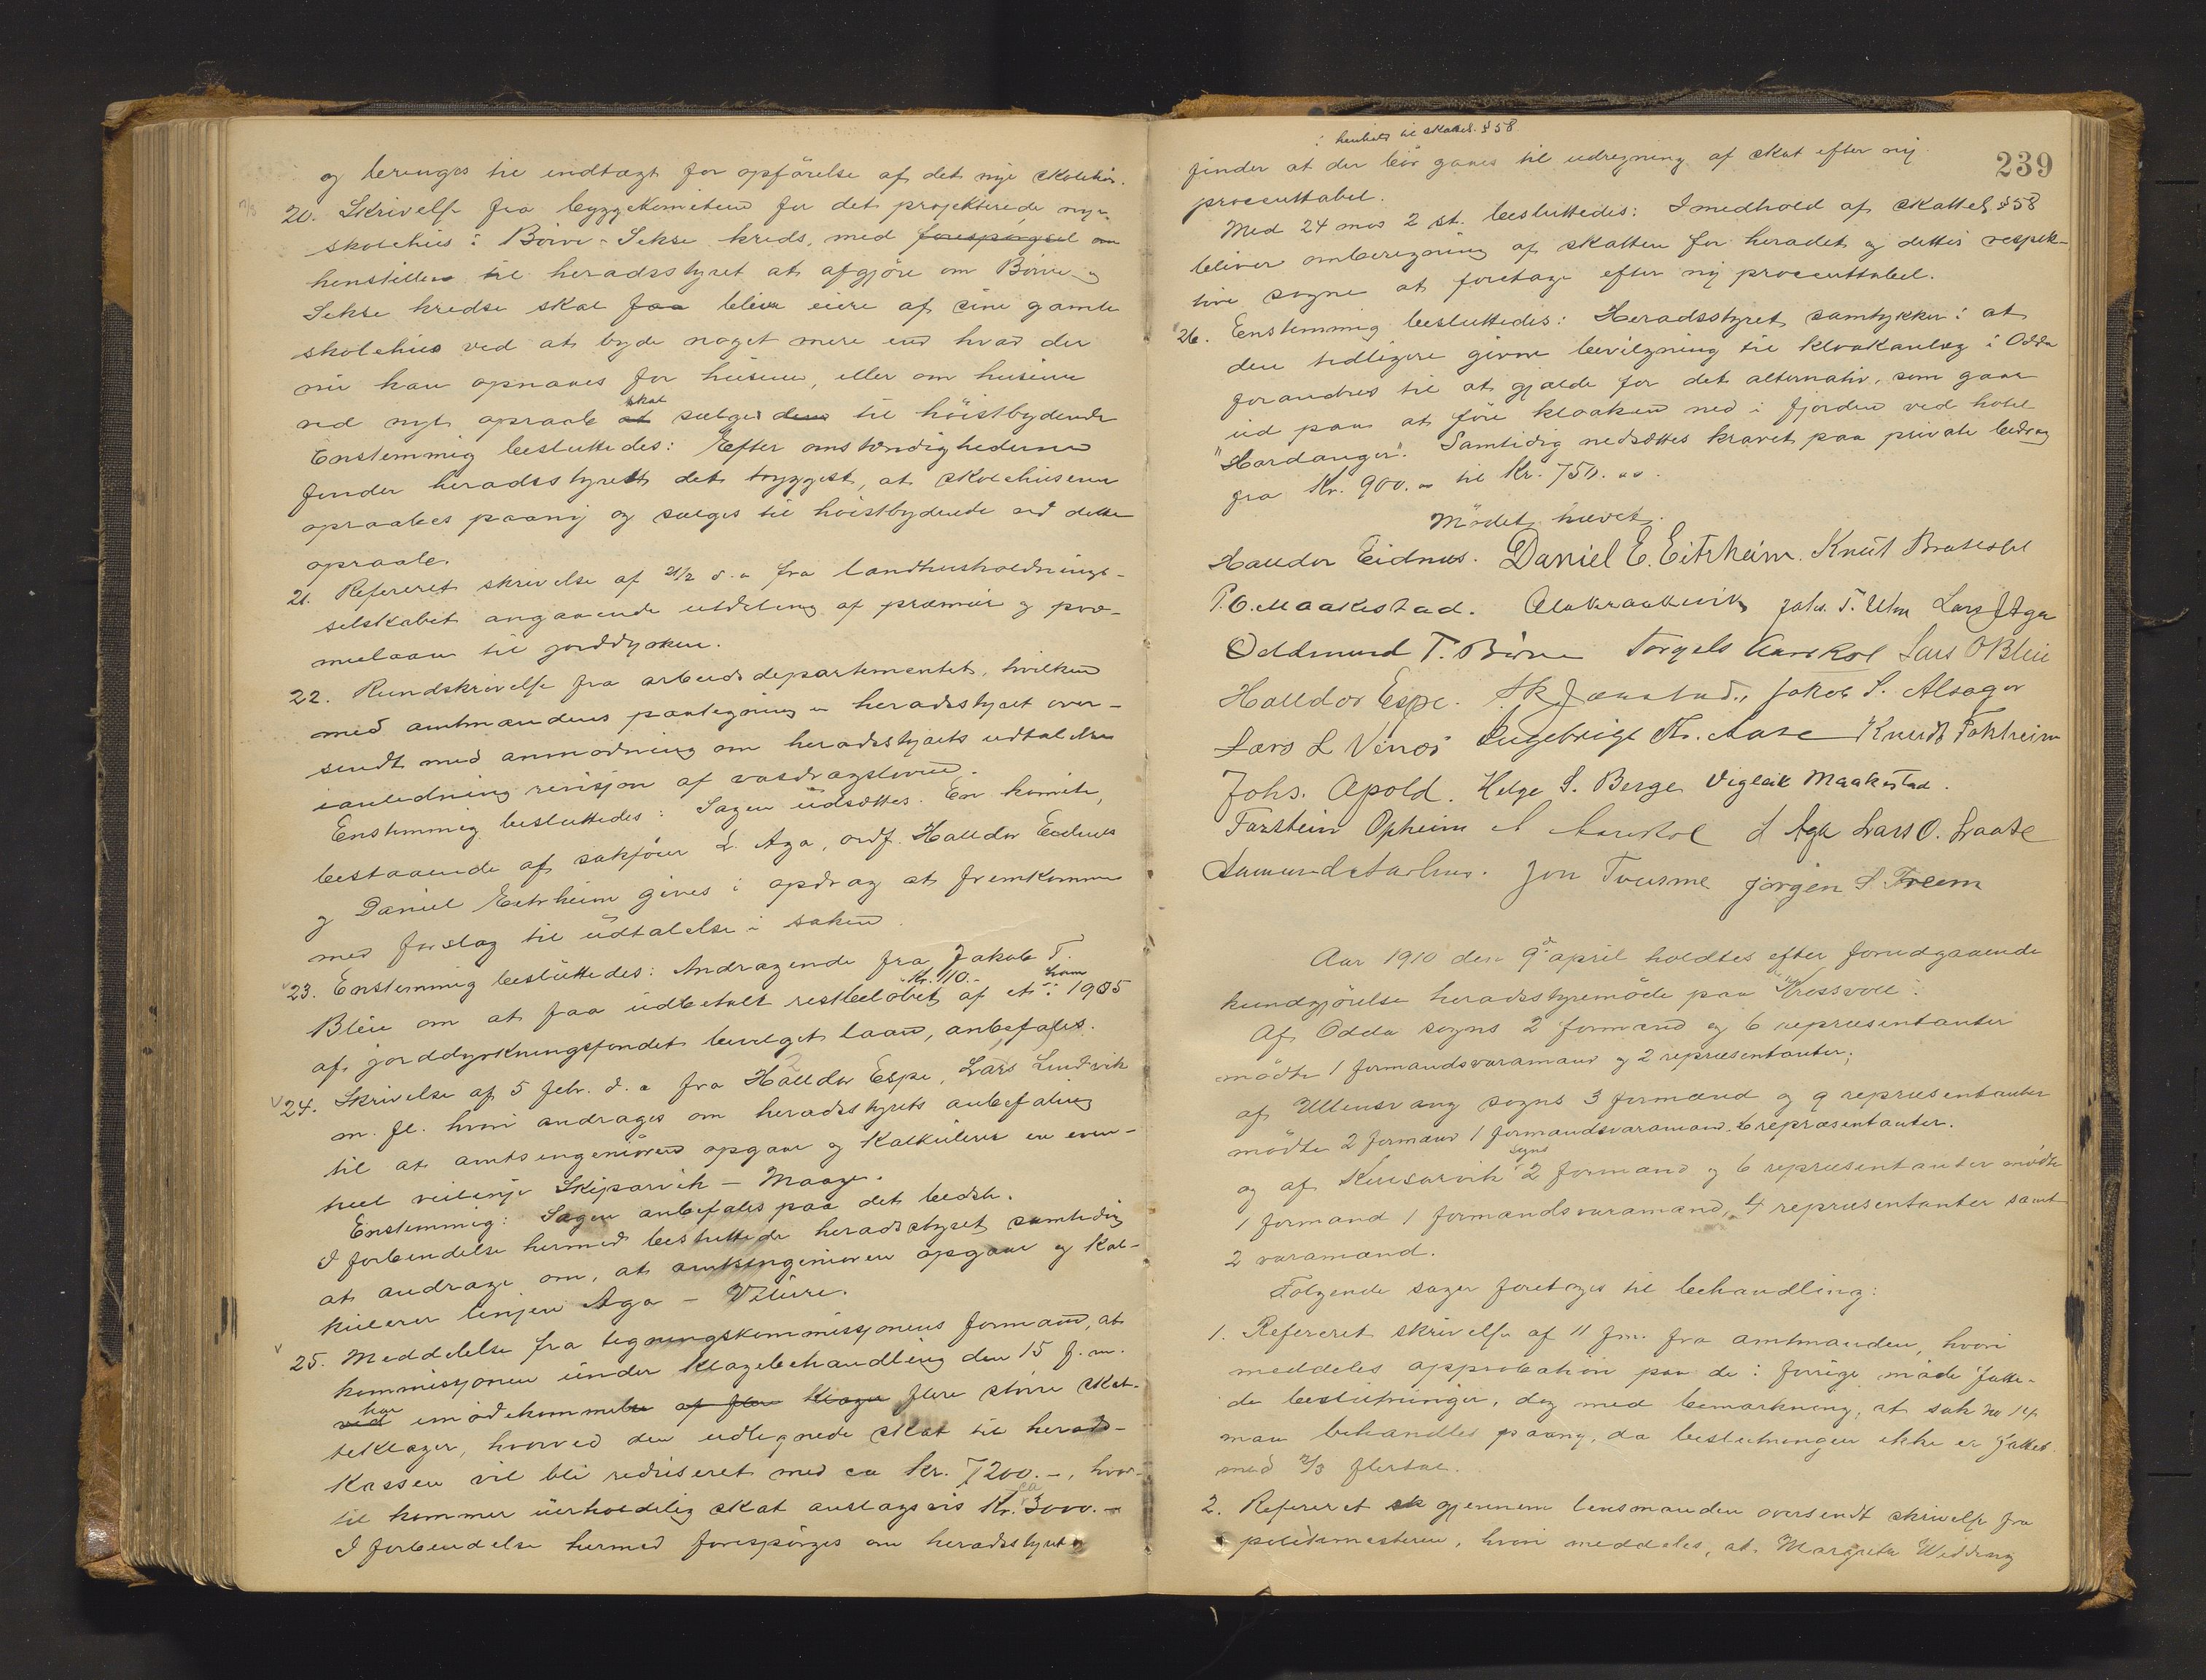 og bringes til indtægt for opførelse af det nye skolehus.
20. Skrivelse fra byggekomiteen for det projekterede nye
skolehus i Børve-Sekse kreds, med forespørgsel om
henstillen til heradsstyret at afgjøre om Børve og
Sekse kredse skal faa blive eiere af sine gamle
skolehus ved at byde noget mere end hvad der
nu kan opnaaes for husene, eller om husene
ved nyt opraab at skal sælges dem til høistbydende
Enstemmig besluttedes: Efter omstændighederne
finder heradsstyret det tryggest, at skolehusene
opraabes paany og sælges til høistbydende ved dette
opraab.
21. Refereret skrivelse af 21/2 d.a fra landhusholdnings-
selskabet angaaende utdeling af præmier og præ-
mielaan til jorddyrkere.
22. Rundskrivelse fra arbeidsdepartementet, hvilken
med amtmandens paategning er heradsstyret over-
sendt med anmodning om heradsstyrets udtalelse
i anledning revisjon af vasdragsloven.
Enstemmig besluttedes: Sagen udsættes. En komite,
bestaaende af sakfører L. Aga, ordf. Halldor Eidnes
og Daniel Eitrheim gives i opdrag at fremkomme
med forslag til udtalelse i saken.
23. Enstemmig besluttedes: Andragende fra Jakob T.
Bleie om at faa udbetalt restbeløbet Kr. 110.- af et ham i 1905
af jorddyrkningsfondet bevilget laan, anbefales.
24. Skrivelse af 5 febr. d.a fra Halldor Espe, Lars Lindvik
m. fl. hvori andrages om heradsstyrets anbefaling
til at amtsingeniøren opgaar og kalkulerer en even-
tuel veilinje Skiparvik - Maage.
Enstemmig: Sagen anbefales paa det bedste.
I forbindelse hermed besluttede heradsstyret samtidig
at andrage om, at amtsingeniøren opgaar og kal-
kulerer linjen Aga - Vilure.
25. Meddelelse fra ligningskommissjonens formand, at
kommissjonen under klagebehandling den 15 f.m.
ved har imødekommelse af flere klager flere større skat-
teklager, hvorved den udlignede skat til herads-
kassen vil bli reduseret med ca kr. 7200.-, hvor-
til kommer uerholdelig skat anslagsvis ca Kr. 3000.-
I forbindelse hermed forespørges om heradsstyret
239
i henhold til skattel. § 58
finder at der bør gaaes til udregning af skat efter ny
procenttabel.
Med 24 mod 2 st. besluttedes: I medhold af skattel § 58
bliver omberegning af skatten for heradet og dettes respek-
tive sogne at foretage efter ny procenttabel.
26. Enstemmig besluttedes: Heradsstyret samtykker i at
den tidligere givne bevilgning til kloakanlæg i Odda
forandres til at gjælde for det alternativ, som gaar
ud paa at føre kloaken ned i fjorden ved hotel
"Hardanger". Samtidig nedsættes kravet paa private bidrag
fra Kr. 900.- til Kr. 750.00.
Mødet hævet.
Halldor Eidnes. Daniel E. Eitrheim. Knut Bratebøl
P. O. Maakestad. Johs. T. Ulm Lars J Aga
Oddmund T. Børve Torgels Aarekol Lars O Bleie
Halldor Espe. Jakob S. Alsager
Lars L Vinæs Ingebrigt Aase Knudt Tokheim
Johs. Apold. Helge S. Berge Vigleik Maakestad.
Torstein Opheim Aarekol L Aga Lars O. Laate
Jon Tveisme Jørgen S. Freim
Aar 1910 den 9de april holdtes efter forudgaaende
kundgjørelse heradsstyremøde paa "Kressvoll".
Af Odda sogns 2 formænd og 6 repræsentanter
mødte 1 formandsvaramand og 2 repræsentanter;
af Ullensvang sogns 3 formænd og 9 repræsentanter
mødte 2 formænd 1 formandsvaramand, 6 repræsentanter.
og af Kinsarvik sogns 2 formænd og 6 repræsentanter mødte
1 formand 1 formandsvaramand, 4 repræsentanter samt
2 varamænd.
Følgende sager foretoges til behandling:
1. Refereret skrivelse af 11 f.m. fra amtmanden, hvori
meddeles approbation paa de i forrige møde fatte-
de beslutninger, dog med bemærkning, at sak no 14
maa behandles paany, da beslutningen ikke er fattet
med 2/3 flertal.
2. Refereret sk gjennem lensmanden oversendt skrivelse fra
politimesteren, hvori meddeles, at Margreta Widding